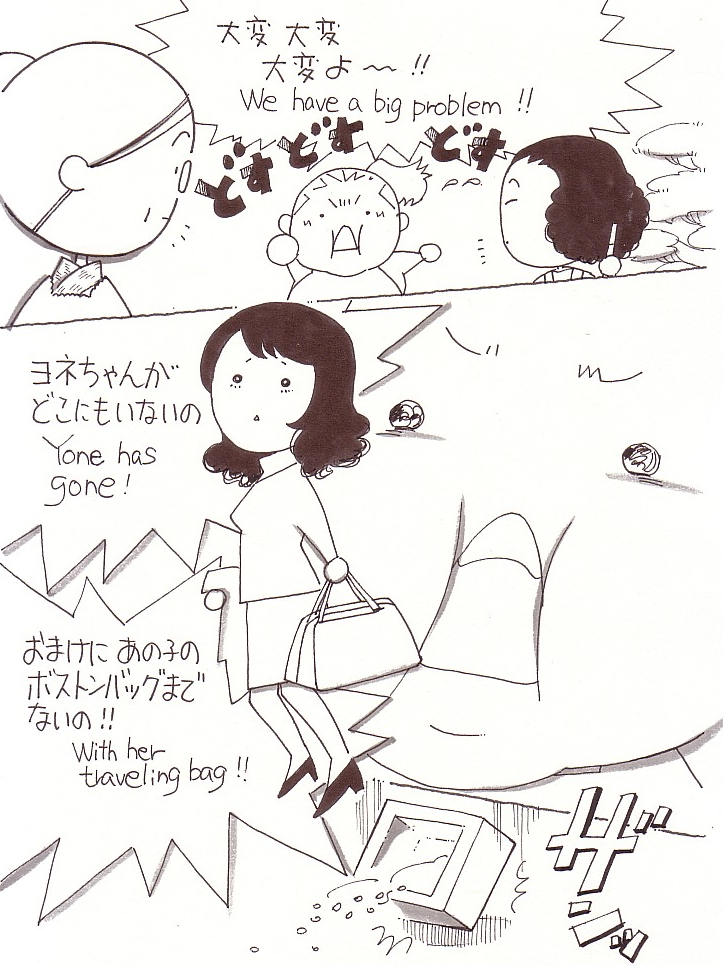 大変 大変
大変よ〜!!
We have a big problem!!
どす どす どす
ヨネちゃんが
どこにもいないの
Yone has
gone!
おまけに あの子の
ボストンバッグまで
ないの!!
With her
traveling bag!!